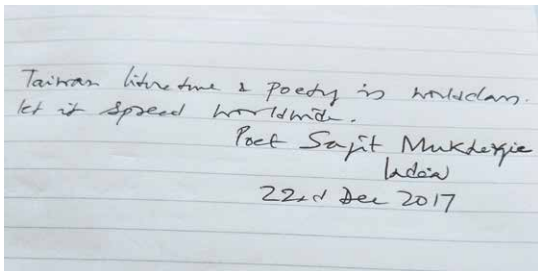 Taiwan literature & poetry is worldclass.
let it spread worldwide.
Poet Sajit Mukherjee
India
22nd Dec 2017